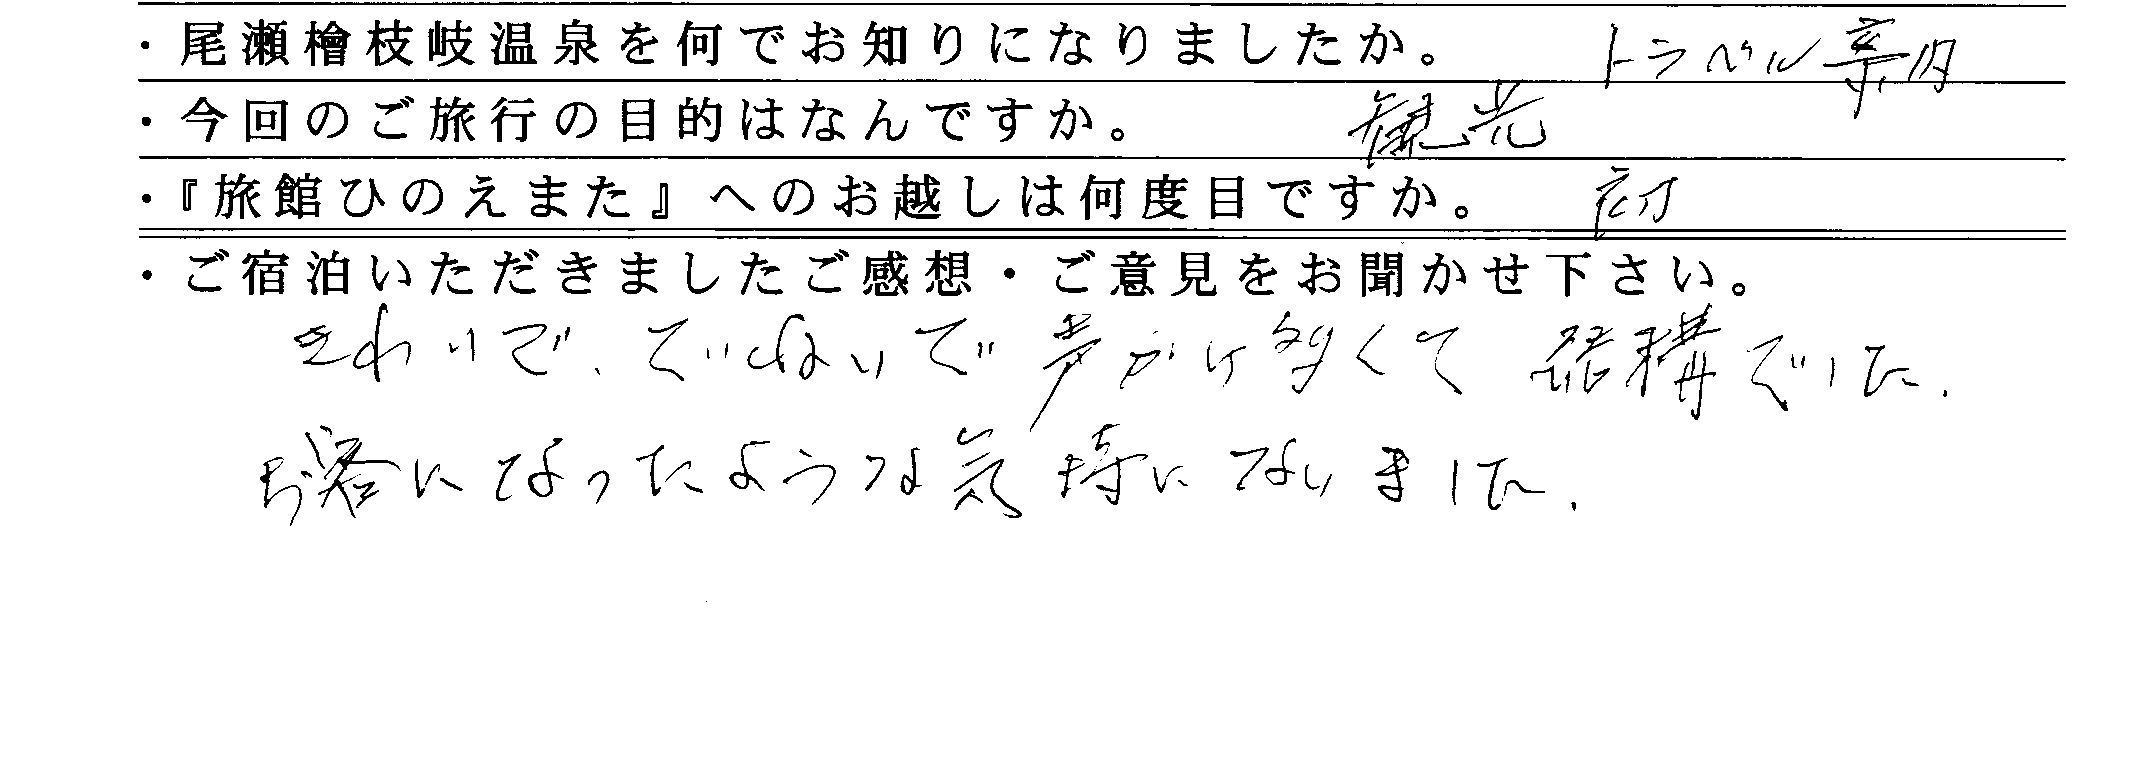 ・尾瀬檜枝岐温泉を何でお知りになりましたか。 トラベル案内
・今回のご旅行の目的はなんですか。 観光
・『旅館ひのえまた』へのお越しは何度目ですか。 初
・ご宿泊いただきましたご感想・ご意見をお聞かせ下さい。
きれいで、ていねいで声かけ多くて結構でした.
お客になったような気持になりました.